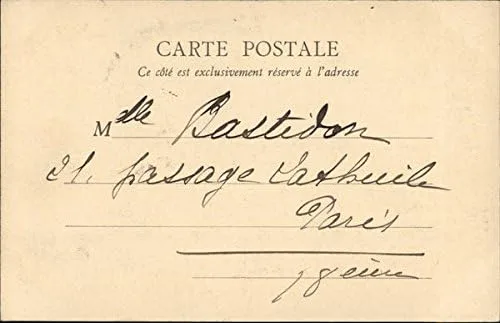 CARTE POSTALE
Ce côté est exclusivement réservé à l'adresse
Mlle Bastidon
21. passage Lathuile
Paris
18ème